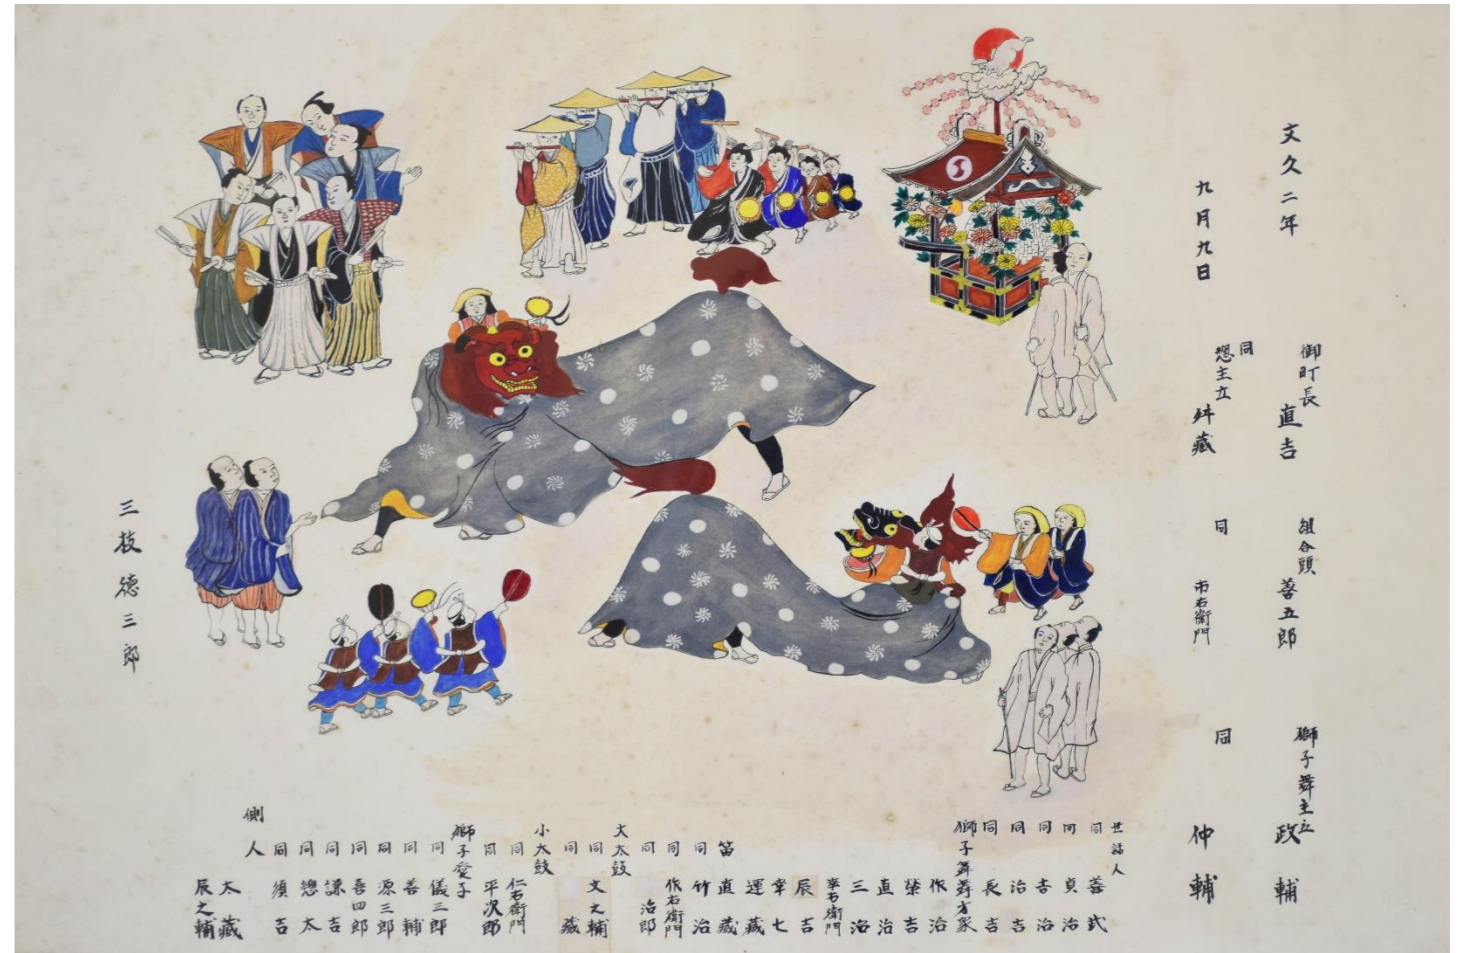 文久二年
九月九日
御町長 直吉
同 惣主立 舛藏
組合頭 善五郎
同 市右衛門
獅子舞主立 政輔
同 仲輔
世話人 善弐
同 貞治
同 吉治
同 治吉
同 長吉
獅子舞舞方象
作治
榮吉
直治
三治
幸右衛門
辰吉
幸七
運藏
笛 直藏
同 竹治
同 作右衛門
同 治郎
大太鼓
同 文之輔
同 藏
小太鼓
同 仁右衛門
同 平次郎
獅子愛子
同 儀三郎
同 善輔
同 源三郎
同 喜四郎
同 謙吉
同 惣太
同 須吉
側人 太藏
辰之輔
三枝德三郎